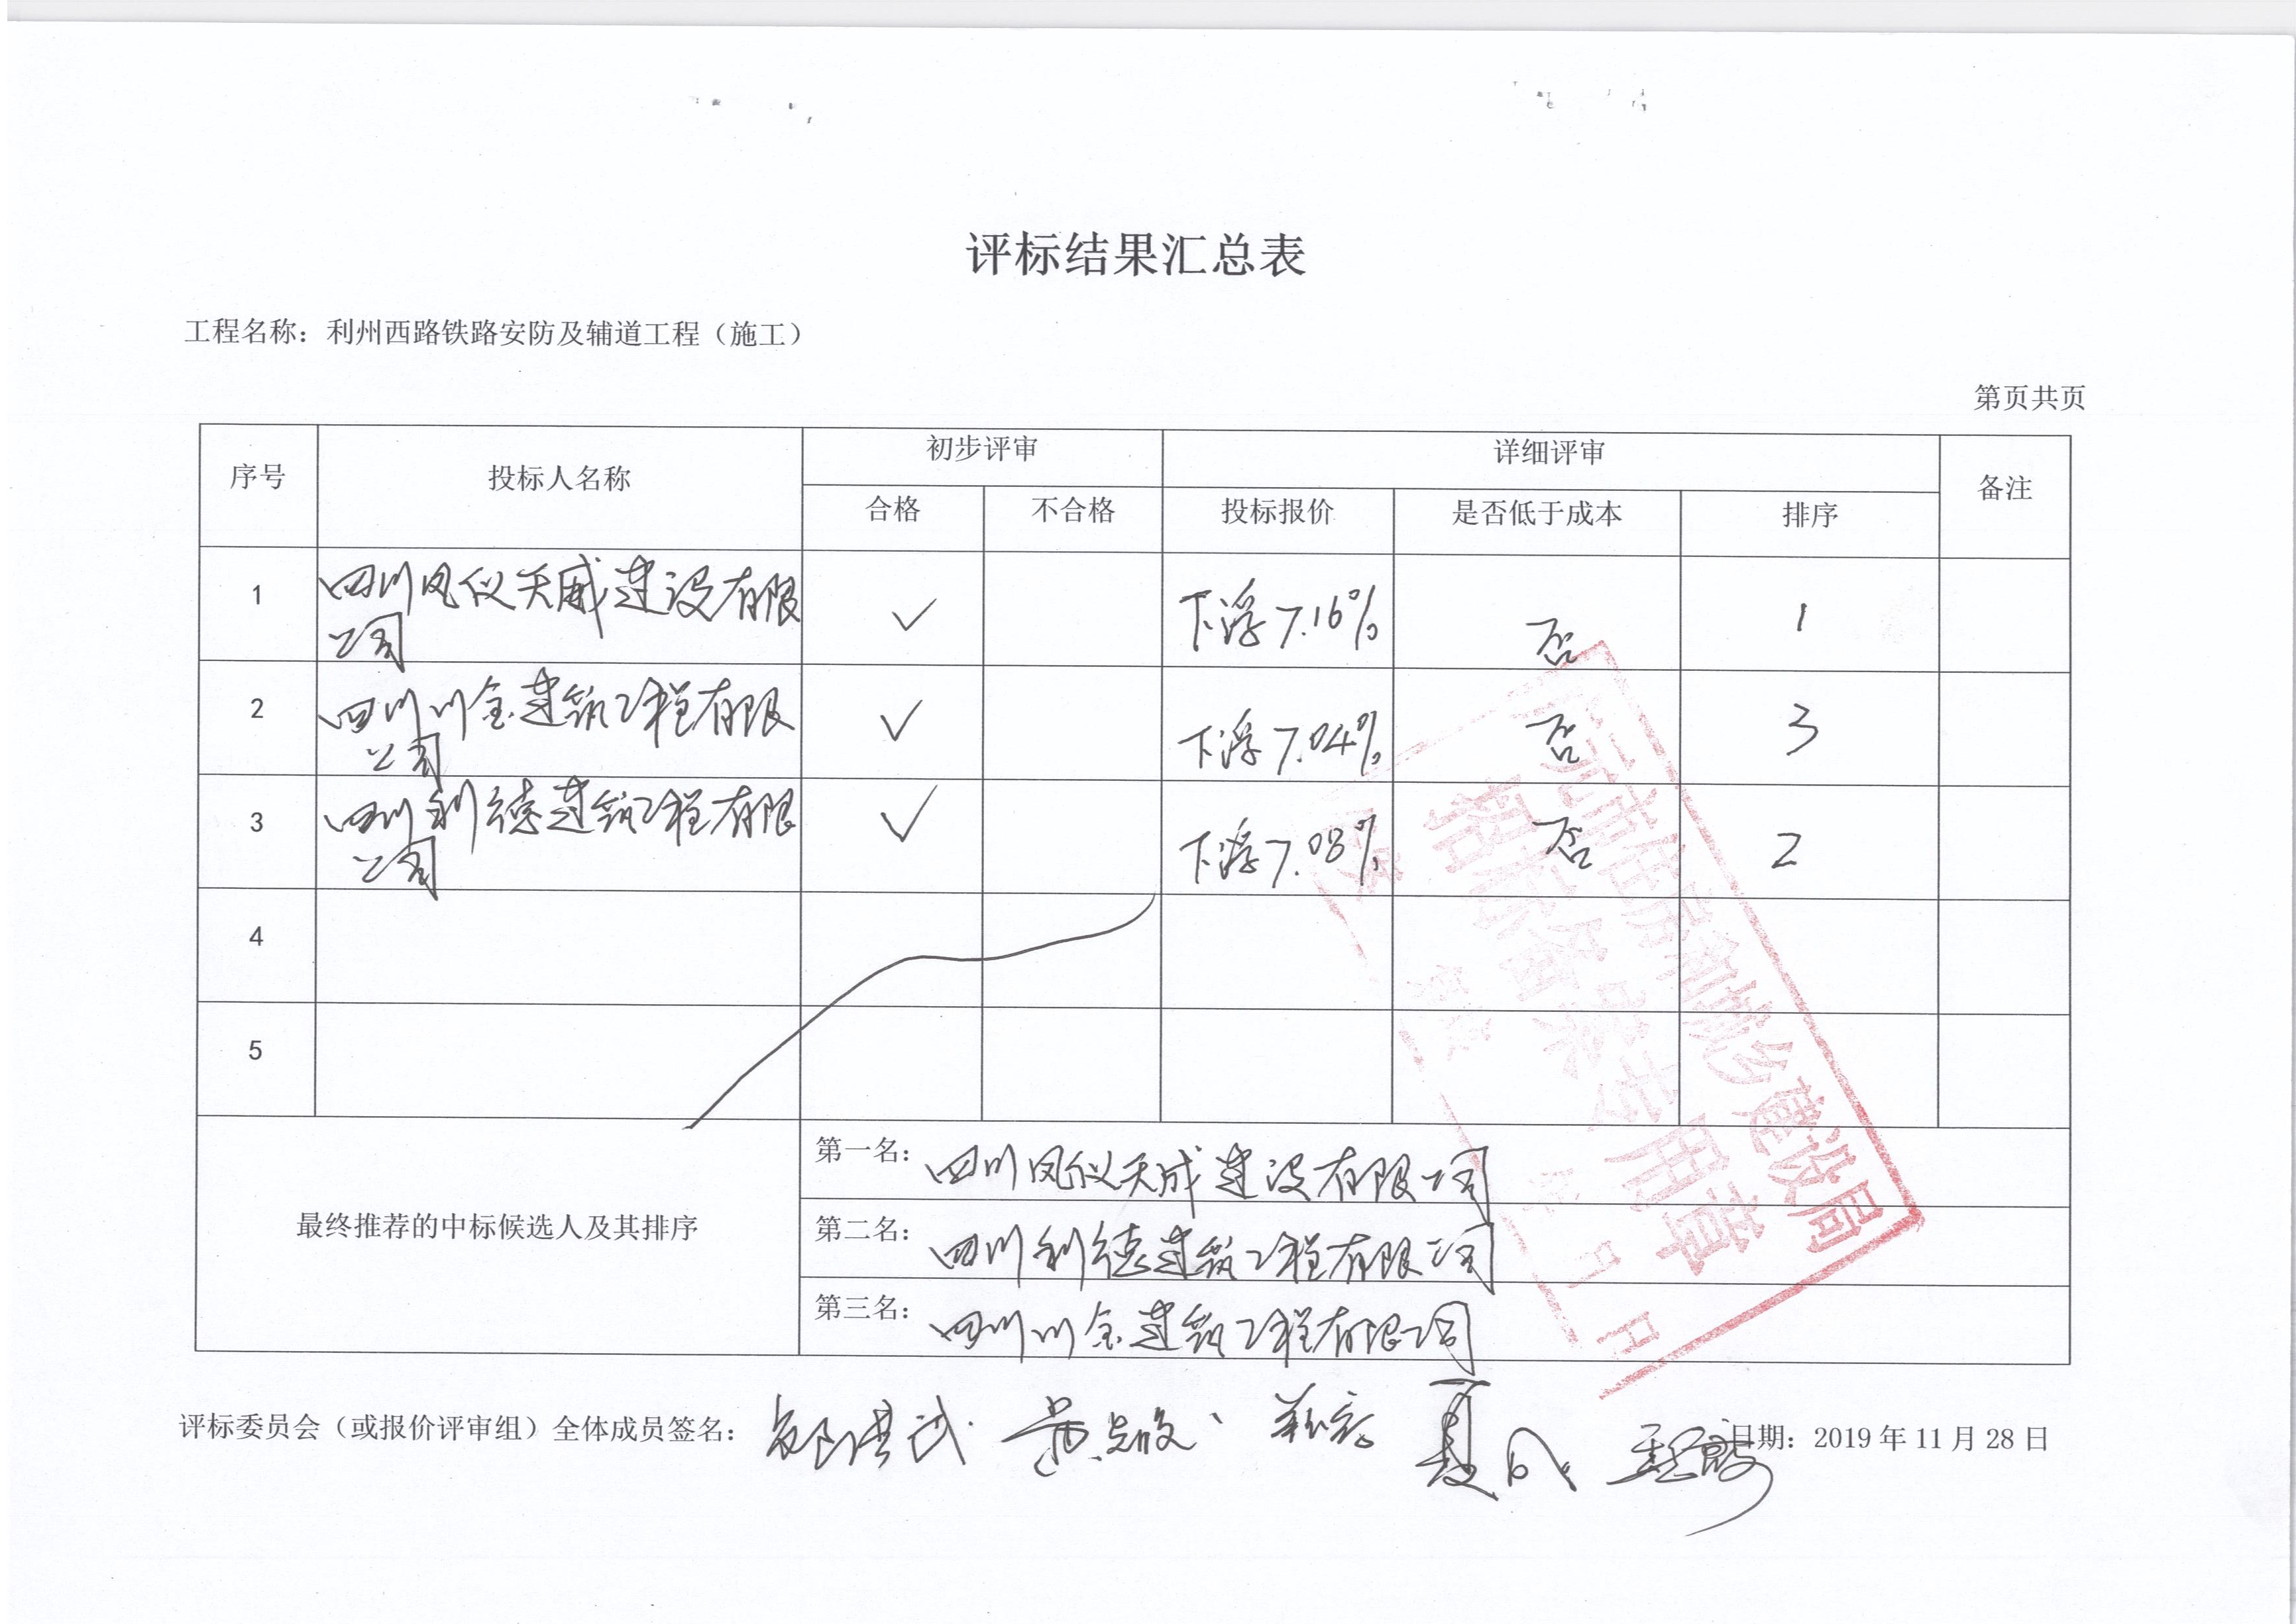 评标结果汇总表
工程名称：利州西路铁路安防及辅道工程（施工）
第页共页
序号 投标人名称 初步评审 详细评审 备注
合格 不合格 投标报价 是否低于成本 排序
1 四川凤仪天威建设有限公司 ✓ 下浮7.16% 否 1
2 四川川金建筑工程有限公司 ✓ 下浮7.04% 否 3
3 四川利德建筑工程有限公司 ✓ 下浮7.08% 否 2
4
5
最终推荐的中标候选人及其排序
第一名：四川凤仪天成建设有限公司
第二名：四川利德建筑工程有限公司
第三名：四川川金建筑工程有限公司
广元市住房和城乡建设局
招标备案专用章
评标委员会（或报价评审组）全体成员签名：
日期：2019年11月28日